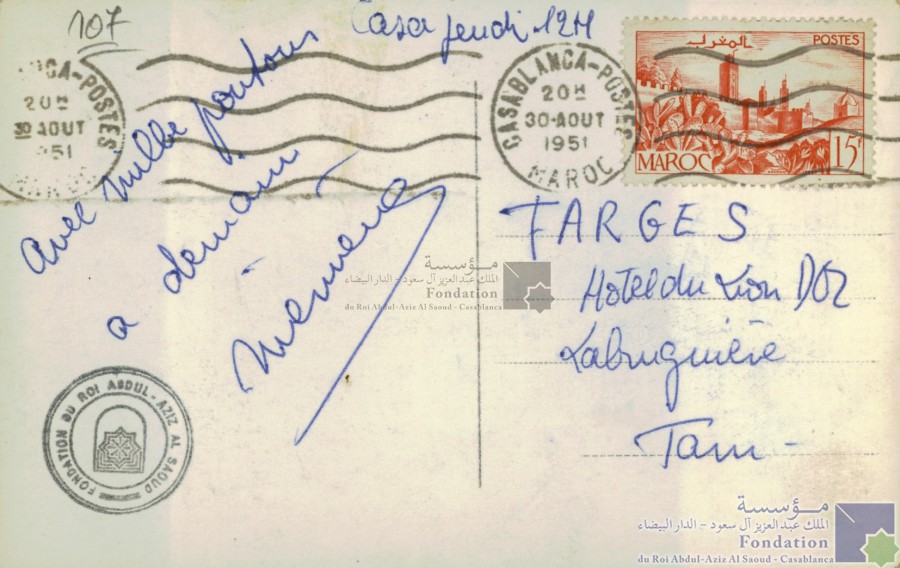 107
Casa jeudi 12H
Avec mille pour tous
a demain
FARGES
Hotel du Lion DOR
Labruguière
Tarn -
CASABLANCA-POSTES
20H
30 AOUT
1951
MAROC
CASABLANCA-POSTES
20H
30-AOUT
1951
MAROC
المغرب
POSTES
MAROC
15F
مؤسسة
الملك عبدالعزيز آل سعود - الدار البيضاء
Fondation
du Roi Abdul-Aziz Al Saoud - Casablanca
FONDATION DU ROI ABDUL-AZIZ AL SAOUD
مؤسسة
الملك عبدالعزيز آل سعود - الدار البيضاء
Fondation
du Roi Abdul-Aziz Al Saoud - Casablanca